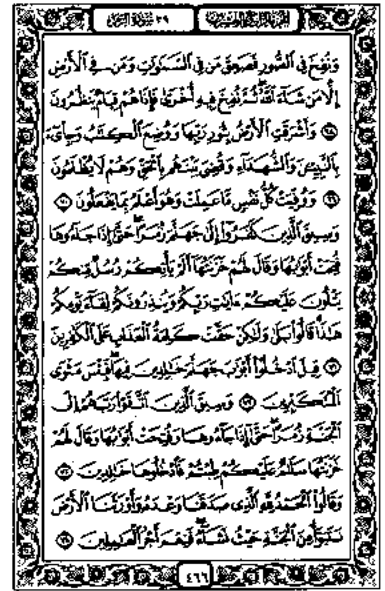 ٣٩ سورة الزمر
وَنُفِخَ فِي الصُّورِ فَصَعِقَ مَن فِي السَّمَٰوَٰتِ وَمَن فِي الْأَرْضِ
إِلَّا مَن شَاءَ اللَّهُ ثُمَّ نُفِخَ فِيهِ أُخْرَىٰ فَإِذَا هُمْ قِيَامٌ يَنظُرُونَ
٦٨ وَأَشْرَقَتِ الْأَرْضُ بِنُورِ رَبِّهَا وَوُضِعَ الْكِتَٰبُ وَجِاْيٓءَ
بِالنَّبِيِّـۧنَ وَالشُّهَدَاءِ وَقُضِيَ بَيْنَهُم بِالْحَقِّ وَهُمْ لَا يُظْلَمُونَ
٦٩ وَوُفِّيَتْ كُلُّ نَفْسٍ مَّا عَمِلَتْ وَهُوَ أَعْلَمُ بِمَا يَفْعَلُونَ ٧٠
وَسِيقَ الَّذِينَ كَفَرُوا إِلَىٰ جَهَنَّمَ زُمَرًا حَتَّىٰ إِذَا جَاءُوهَا
فُتِحَتْ أَبْوَٰبُهَا وَقَالَ لَهُمْ خَزَنَتُهَا أَلَمْ يَأْتِكُمْ رُسُلٌ مِّنكُمْ
يَتْلُونَ عَلَيْكُمْ ءَايَٰتِ رَبِّكُمْ وَيُنذِرُونَكُمْ لِقَاءَ يَوْمِكُمْ
هَٰذَا قَالُوا بَلَىٰ وَلَٰكِنْ حَقَّتْ كَلِمَةُ الْعَذَابِ عَلَى الْكَٰفِرِينَ
٧١ قِيلَ ادْخُلُوا أَبْوَٰبَ جَهَنَّمَ خَٰلِدِينَ فِيهَا فَبِئْسَ مَثْوَى
الْمُتَكَبِّرِينَ ٧٢ وَسِيقَ الَّذِينَ اتَّقَوْا رَبَّهُمْ إِلَى
الْجَنَّةِ زُمَرًا حَتَّىٰ إِذَا جَاءُوهَا وَفُتِحَتْ أَبْوَٰبُهَا وَقَالَ لَهُمْ
خَزَنَتُهَا سَلَٰمٌ عَلَيْكُمْ طِبْتُمْ فَادْخُلُوهَا خَٰلِدِينَ ٧٣
وَقَالُوا الْحَمْدُ لِلَّهِ الَّذِي صَدَقَنَا وَعْدَهُ وَأَوْرَثَنَا الْأَرْضَ
نَتَبَوَّأُ مِنَ الْجَنَّةِ حَيْثُ نَشَاءُ فَنِعْمَ أَجْرُ الْعَٰمِلِينَ ٧٤
٤٦٦